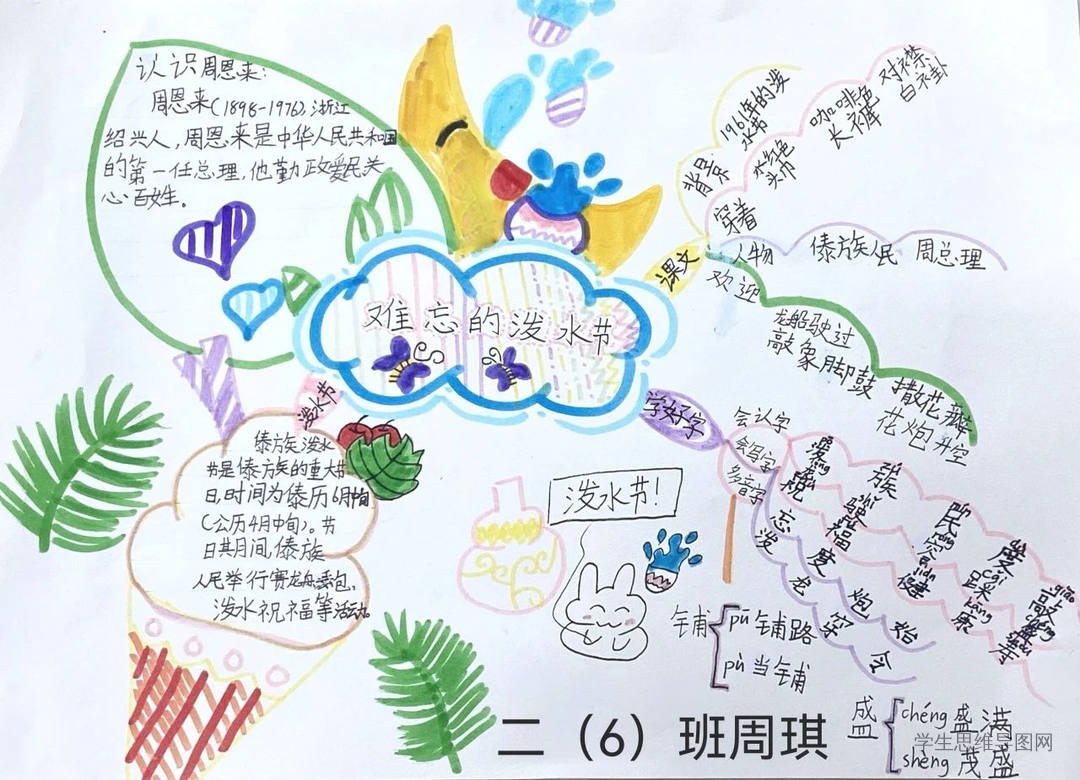 认识周恩来:
周恩来(1898-1976),浙江
绍兴人,周恩来是中华人民共和国
的第一任总理,他勤政爱民关
心百姓。
难忘的泼水节
课文
背景
1961年的泼
水节
穿着
水红色
头巾
咖啡色
长裤
对襟
白衬
人物
傣族人民
周总理
欢迎
龙船驶过
敲象脚鼓
撒花瓣
花炮升空
泼水节
傣族泼水
节是傣族的重大节
日,时间为傣历6月中旬
(公历4月中旬)。节
日其月间,傣族
人民举行赛龙舟
泼水祝福等活动。
学好字
会认字
会写字
多音字
族
民
度
敲
驶
踩
福
健
康
寿
忘
度
炮
始
泼
龙
穿
令
泼水节!
铺
pū铺路
pù当铺
盛
chéng盛满
shèng茂盛
二(6)班周琪
学生思维导图网